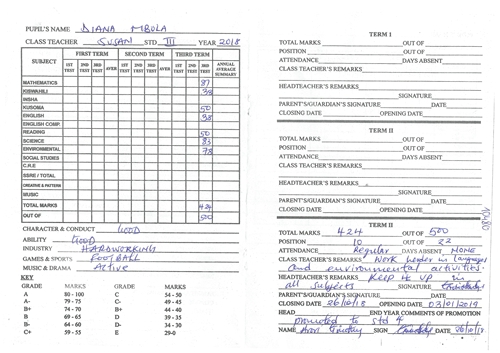 PUPIL'S NAME DIANA MBOLA
CLASS TEACHER SUSAN STD III YEAR 2018
SUBJECT FIRST TERM SECOND TERM THIRD TERM ANNUAL AVERAGE SUMMARY
1ST TEST 2ND TEST 3RD TEST AVER 1ST TEST 2ND TEST 3RD TEST AVER 1ST TEST 2ND TEST 3RD TEST
MATHEMATICS 87
KISWAHILI 38
INSHA
KUSOMA 50
ENGLISH 38
ENGLISH COMP.
READING 50
SCIENCE 83
ENVIRONMENTAL 78
SOCIAL STUDIES
C.R.E
SSRE / TOTAL
CREATIVE & PATTERN
MUSIC
TOTAL MARKS 424
OUT OF 500
CHARACTER & CONDUCT GOOD
ABILITY GOOD
INDUSTRY HARDWORKING
GAMES & SPORTS FOOTBALL
MUSIC & DRAMA Active
KEY
GRADE MARKS GRADE MARKS
A 80 - 100 C 54 - 50
A- 79 - 75 C- 49 - 45
B+ 74 - 70 B+ 44 - 40
B 69 - 65 D 39 - 35
B- 64 - 60 D- 34 - 30
C+ 59 - 55 E 29-0
TERM 1
TOTAL MARKS OUT OF
POSITION OUT OF
ATTENDANCE DAYS ABSENT
CLASS TEACHER'S REMARKS
HEADTEACHER'S REMARKS
SIGNATURE
PARENT'S/GUARDIAN'S SIGNATURE DATE
CLOSING DATE OPENING DATE
TERM II
TOTAL MARKS OUT OF
POSITION OUT OF
ATTENDANCE DAYS ABSENT
CLASS TEACHER'S REMARKS
HEADTEACHER'S REMARKS
SIGNATURE
PARENT'S/GUARDIAN'S SIGNATURE DATE
CLOSING DATE OPENING DATE
TERM II
TOTAL MARKS 424 OUT OF 500
POSITION 10 OUT OF 22
ATTENDANCE Regular DAYS ABSENT NONE
CLASS TEACHER'S REMARKS Work harder in languages
and environmental activities.
HEADTEACHER'S REMARKS Keep it up in
all subjects SIGNATURE
PARENT'S/GUARDIAN'S SIGNATURE DATE
CLOSING DATE 26/10/18 OPENING DATE 03/01/2019
HEAD END YEAR COMMENTS OF PROMOTION
promoted to std 4
NAME Timothy SIGN DATE 26/10/18